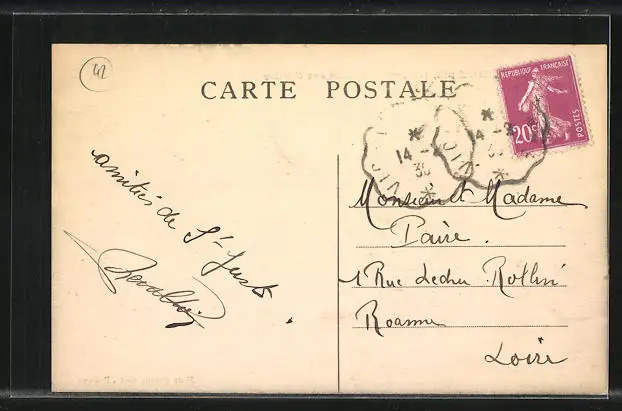 42
CARTE POSTALE
REPUBLIQUE FRANÇAISE
20c
POSTES
* 14 - 30 *
* 14 - 30 *
amitiés de St Just
Monsieur et Madame
Paire.
1 Rue Ledru Rollin
Roanne
Loire